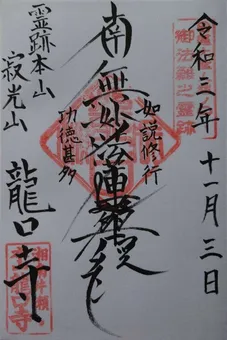 令和三年 十一月三日
御法難之霊跡
南無妙法蓮華経
如説修行
功徳甚多
霊跡本山
寂光山
龍口寺